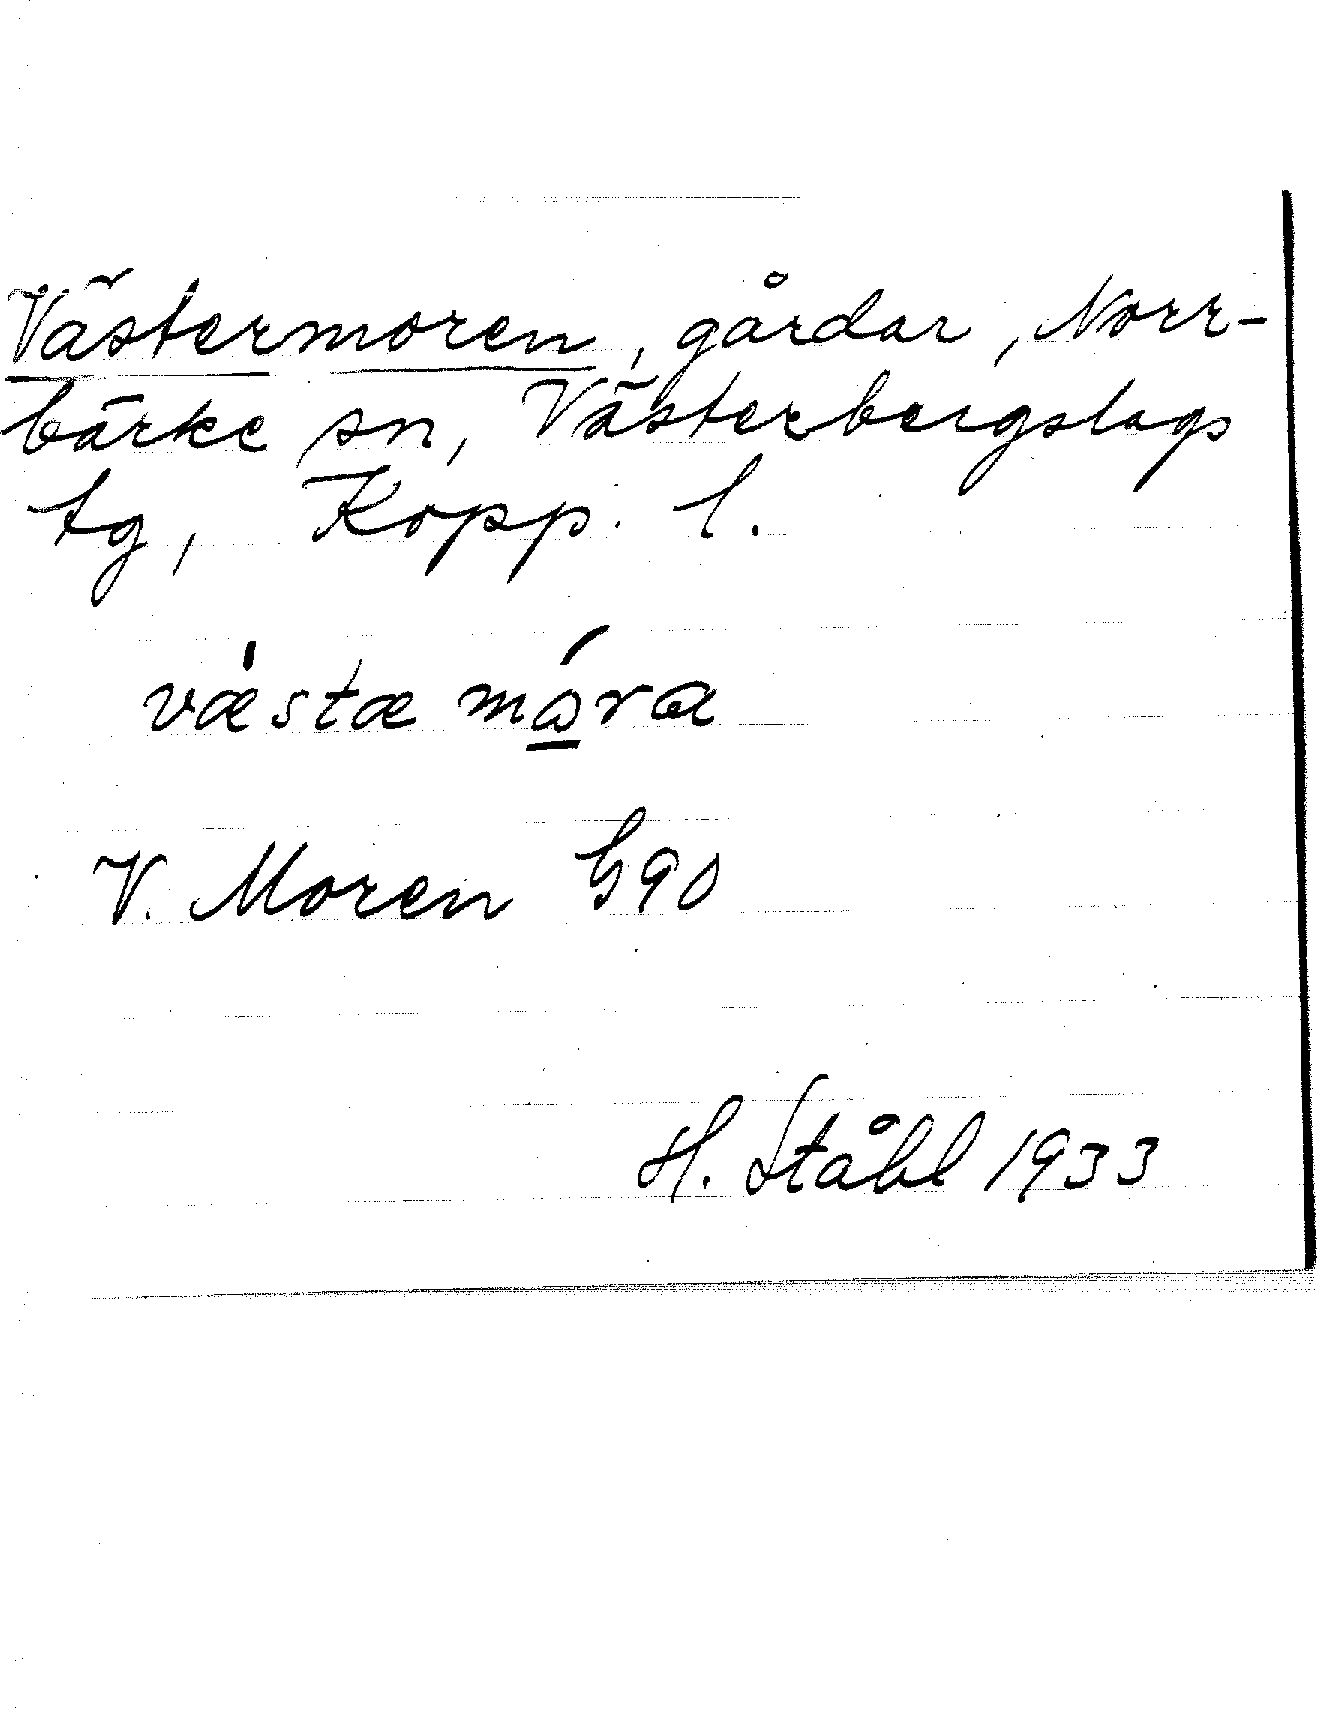 Västermoren, gårdar, Norr-
bärke sn, Västerbergslags
tg, Kopp. l.
væ̍stæ mó̲ra
V. Moren G90
H. Ståhl 1933